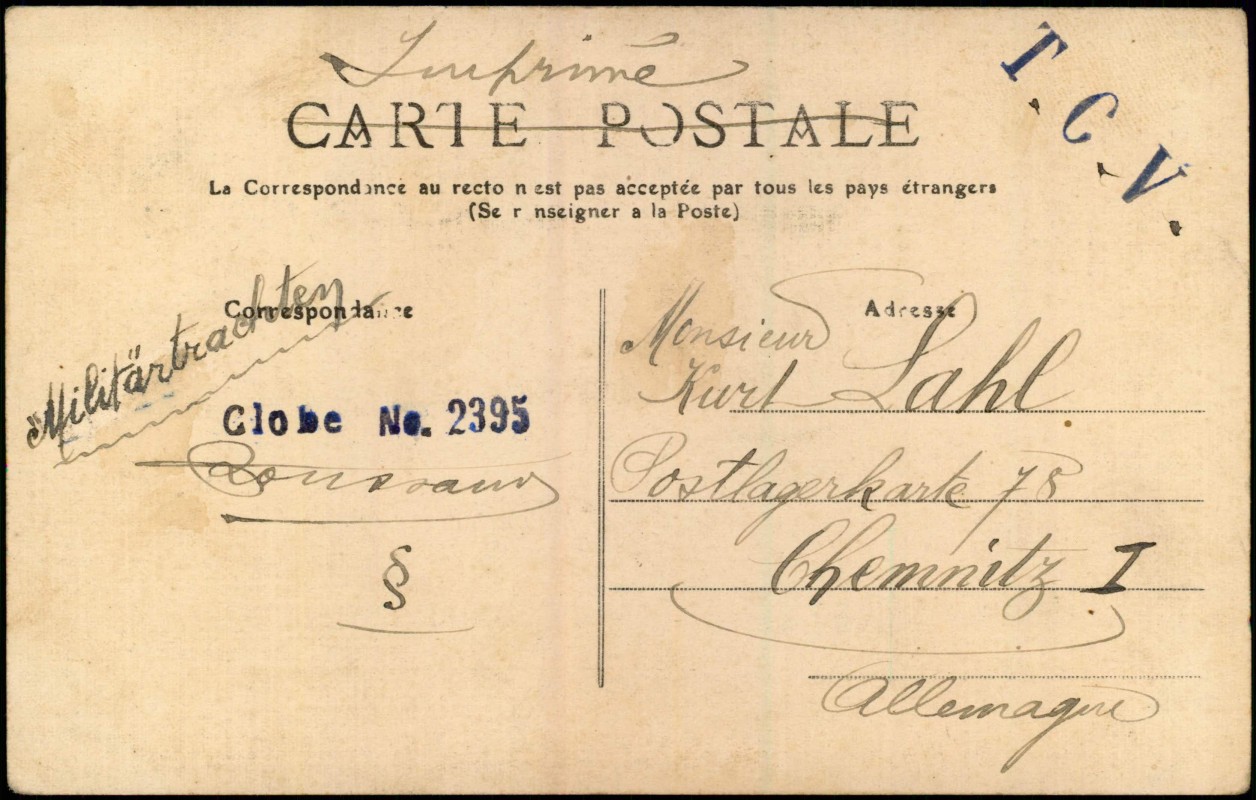 Imprimé
T. C. V.
CARTE POSTALE
La Correspondance au recto n est pas acceptée par tous les pays étrangers
(Se r nseigner a la Poste)
Correspondance
Adresse
Militärtrachten
Monsieur
Kurt Lahl
Globe No. 2395
Postlagerkarte 78
§
Chemnitz I
Allemagne